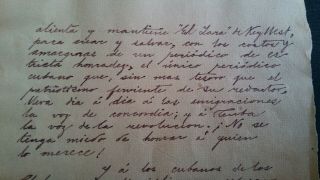 alienta y mantiene "El Yara" de Key West,
para crear y salvar, con los costos y
amarguras de un periódico de es-
tricta honradez, el único periódico
cubano que, sin mas tesoro que el
patriotismo ferviente de su redactor,
lleva dia á dia á las emigraciones
la voz de concordia; y á Cuba
la voz de la revolucion. ¡No se
tenga miedo de honrar á quien
lo merece!
Y á los cubanos de los